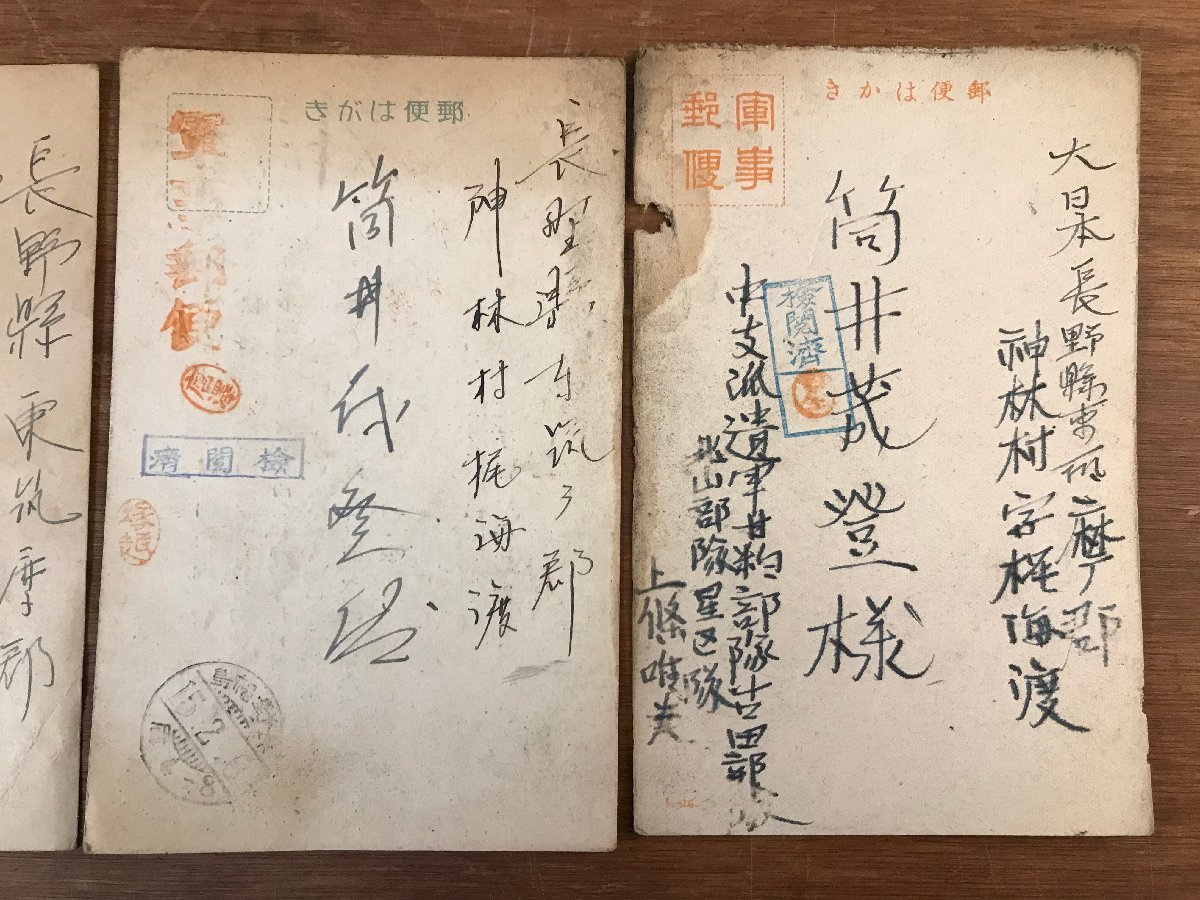 長野縣東筑摩郡
郵便はがき
軍事郵便
檢閲濟
長野縣東筑
郡
神林村梶海渡
筒井茂登
15.2
郵便はかき
軍事
郵便
大日本長野縣東筑摩郡
神林村字梶海渡
筒井茂登様
檢閲濟
中支派遣軍甘粕部隊吉田部隊
山部隊星
隊
上條唯夫